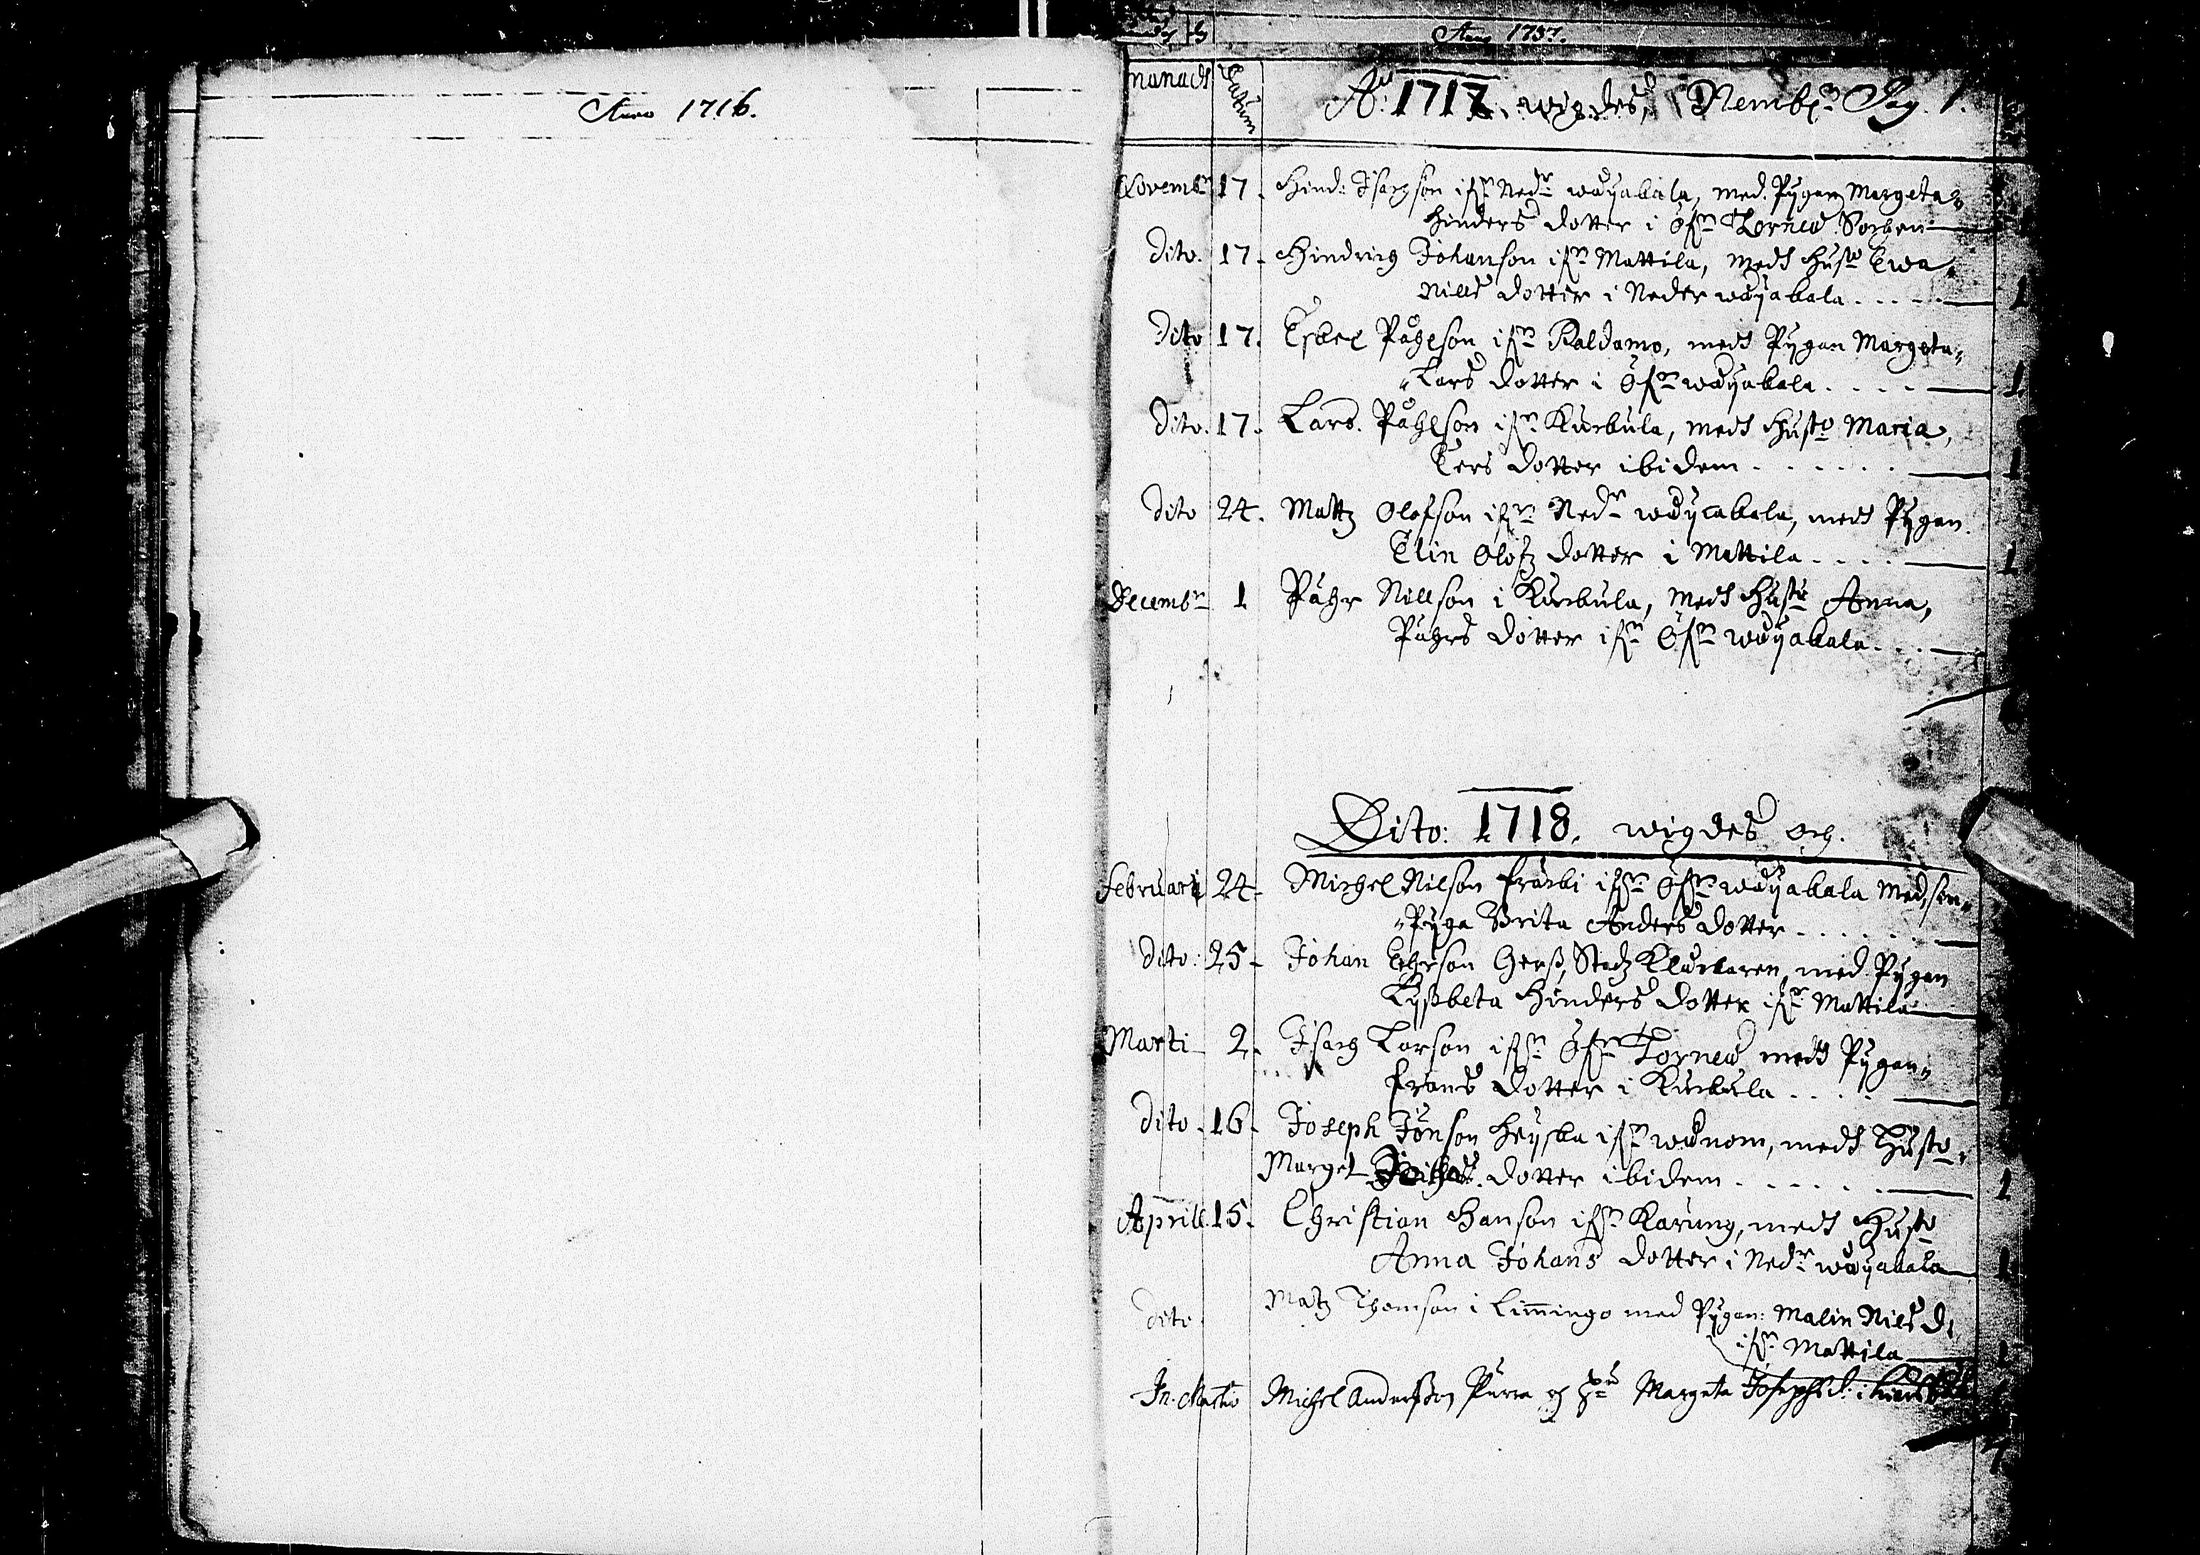 Anno 1716.
Ano 1737.
månadt Datum Ao: 1717. wigdes, Nembl: Pag. 1.
Novembr 17. Hind: Isacson ifrn Nedr wåjakala, med Pygan Margeta
Hinders dotter i Öfr Torneå Socken 1
Dito. 17. Hindrich Johanson ifrn Mattila, medh Husto Ewa
Nills dotter i Neder wåjakala 1
Dito 17. Eskel Påhlson ifrn Raldamo, medh Pygan Margeta
Lars dotter i Öfrn wåjakala 1
Dito. 17. Lars Påhlson ifrn Kuckula, medh Husto Maria,
Ers dotter ibidem 1
Dito 24. Mattz Olofson ifrn Nedr wåjakala, medh Pygan
Elin Olofz dotter i Mattila 1
Decembr 1 Påhr Nillson i Kuckula, medh Husto Anna,
Påhrs dotter ifrn Öfrn wåjakala
Dito: 1718. wigdes och.
Februari 24. Michel Nilson ifrn Öfrn wåjakala Med, sin
Pyga Brita Anders dotter
Dito: 25. Johan Ehrson Stadz Klockaren, med Pygan
Lyssbeta Hinders dotter ifrn Mattila
Marti 2. Isac Larson ifrn Öfrn Torneå medh Pygan
Frans dotter i Kuckula
Dito 16. Joseph Jönson Heyska ifrn wånom, medh Husto
Marget dotter ibidem 1
Aprill. 15. Christian Hanson ifrn Karung, medh Husto
Anna Johans dotter i Nedr wåjakala 1
dito Matz Thomson i Limmingo med Pygan: Malin Nils D.
ifrn Mattila 1
Michel Andersson Purra och Margeta Josephsd: i